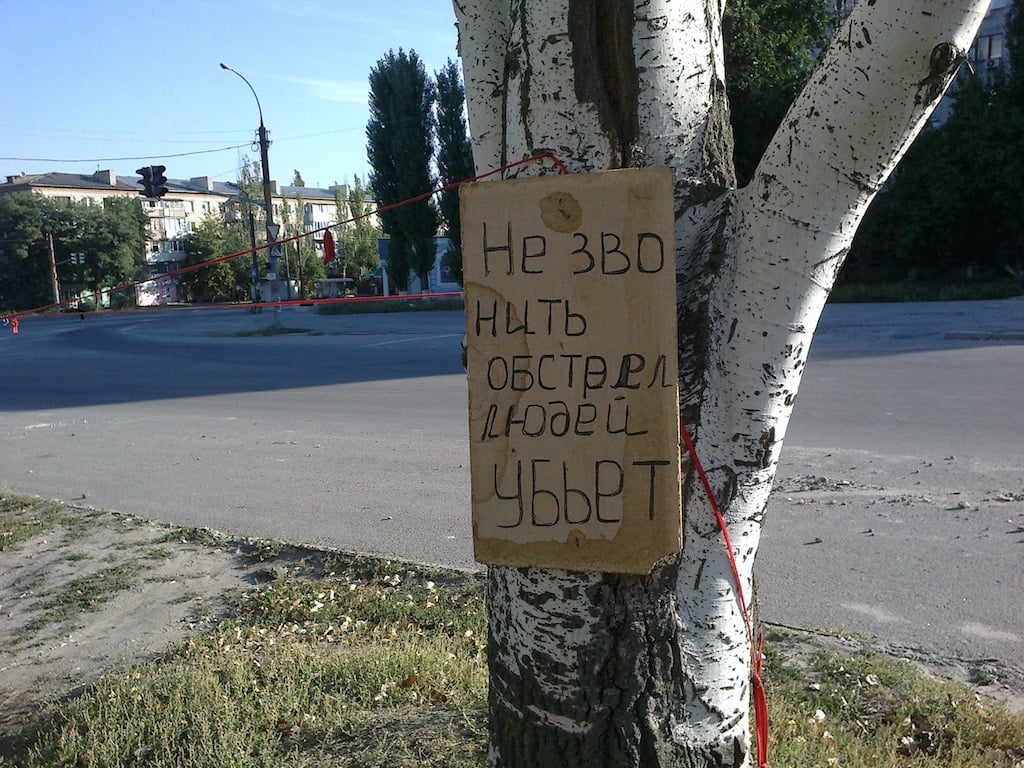 Не зво
нить
обстрел
людей
убьет